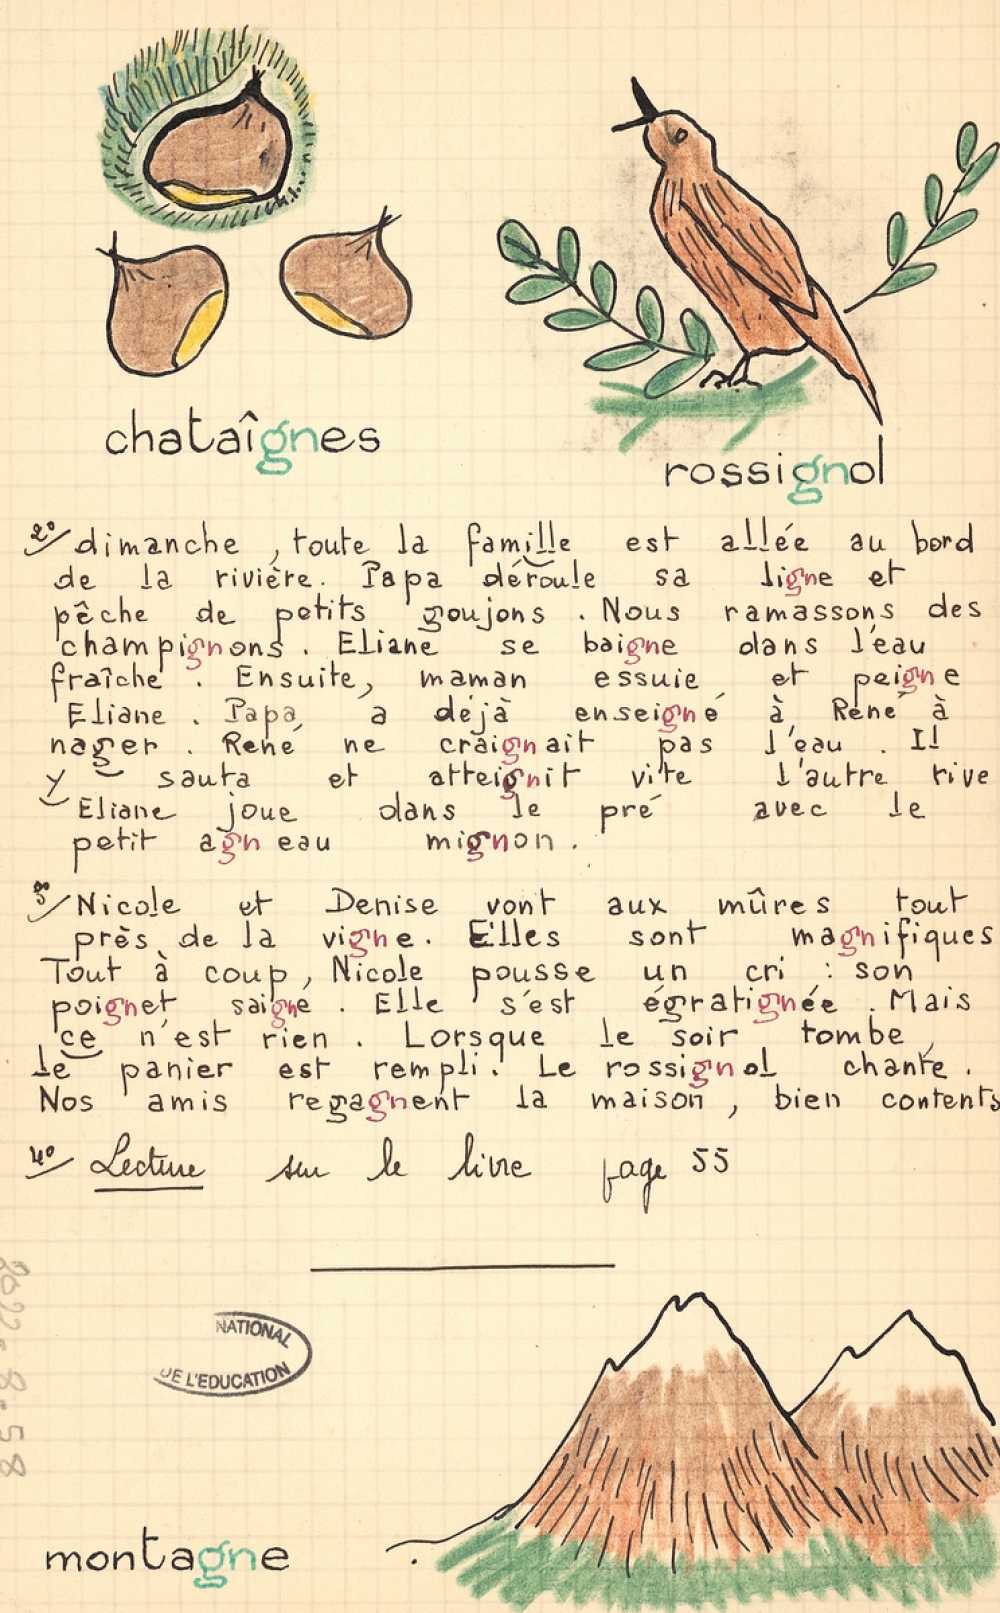 chataîgnes
rossignol
2°/ dimanche, toute la famille est allée au bord
de la rivière. Papa déroule sa ligne et
pêche de petits goujons. Nous ramassons des
champignons. Eliane se baigne dans l'eau
fraîche. Ensuite, maman essuie et peigne
Eliane. Papa a déjà enseigné à René à
nager. René ne craignait pas l'eau. Il
y sauta et atteignit vite l'autre rive
Eliane joue dans le pré avec le
petit agneau mignon.
3°/ Nicole et Denise vont aux mûres tout
près de la vigne. Elles sont magnifiques
Tout à coup, Nicole pousse un cri : son
poignet saigne. Elle s'est égratignée. Mais
ce n'est rien. Lorsque le soir tombe,
le panier est rempli. Le rossignol chante.
Nos amis regagnent la maison, bien contents
4°/ Lecture sur le livre page 55
NATIONAL
DE L'EDUCATION
2022.8.58
montagne